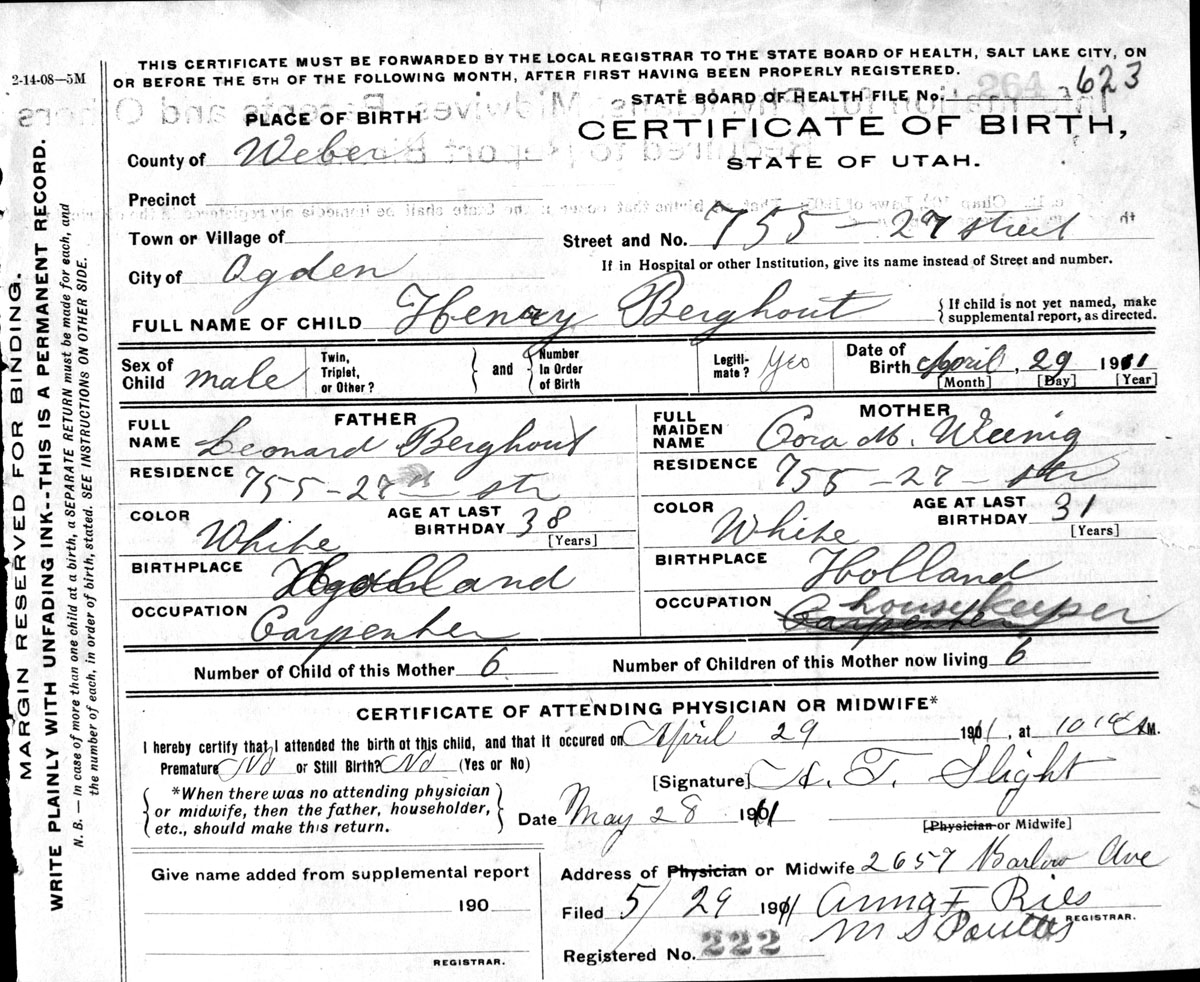 2-14-08—5M
THIS CERTIFICATE MUST BE FORWARDED BY THE LOCAL REGISTRAR TO THE STATE BOARD OF HEALTH, SALT LAKE CITY, ON
OR BEFORE THE 5TH OF THE FOLLOWING MONTH, AFTER FIRST HAVING BEEN PROPERLY REGISTERED.
STATE BOARD OF HEALTH FILE No. 264 623
PLACE OF BIRTH
CERTIFICATE OF BIRTH,
STATE OF UTAH.
County of Weber
Precinct
Town or Village of
Street and No. 755 – 27 street
City of Ogden
If in Hospital or other Institution, give its name instead of Street and number.
FULL NAME OF CHILD Henry Berghout
{ If child is not yet named, make
supplemental report, as directed.
Sex of Child male
Twin, Triplet, or Other?
} and {
Number In Order of Birth
Legiti-mate? Yes
Date of Birth April, 29 1911
[Month] [Day] [Year]
FATHER
FULL NAME Leonard Berghout
RESIDENCE 755 – 27 – str
COLOR White
AGE AT LAST BIRTHDAY 38 [Years]
BIRTHPLACE Holland
OCCUPATION Carpenter
MOTHER
FULL MAIDEN NAME Cora M. Weenig
RESIDENCE 755 – 27 – str
COLOR White
AGE AT LAST BIRTHDAY 31 [Years]
BIRTHPLACE Holland
OCCUPATION Carpenter housekeeper
Number of Child of this Mother 6
Number of Children of this Mother now living 6
CERTIFICATE OF ATTENDING PHYSICIAN OR MIDWIFE*
I hereby certify that I attended the birth of this child, and that it occured on April 29 1911, at 10 A M.
Premature No or Still Birth? No (Yes or No)
[Signature] A. T. Slight
{ *When there was no attending physician
or midwife, then the father, householder,
etc., should make this return. }
Date May 28 1911
[Physician or Midwife]
Give name added from supplemental report
190
REGISTRAR.
Address of Physician or Midwife 2657 Barlow Ave
Filed 5/29 1911 Anna F Ries
M S
REGISTRAR.
Registered No. 222
MARGIN RESERVED FOR BINDING.
WRITE PLAINLY WITH UNFADING INK--THIS IS A PERMANENT RECORD.
N. B. — In case of more than one child at a birth, a SEPARATE RETURN must be made for each, and
the number of each, in order of birth, stated. SEE INSTRUCTIONS ON OTHER SIDE.